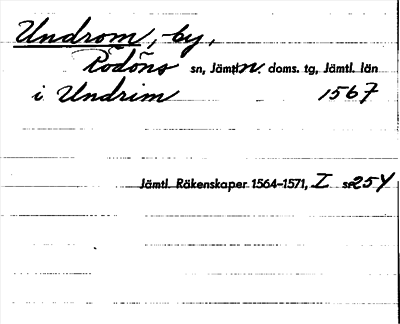 Undrom, -by,
Rödöns sn, Jämtl. n. doms. tg, Jämtl. län
i Undrim 1567
Jämtl. Räkenskaper 1564-1571, I s. 254